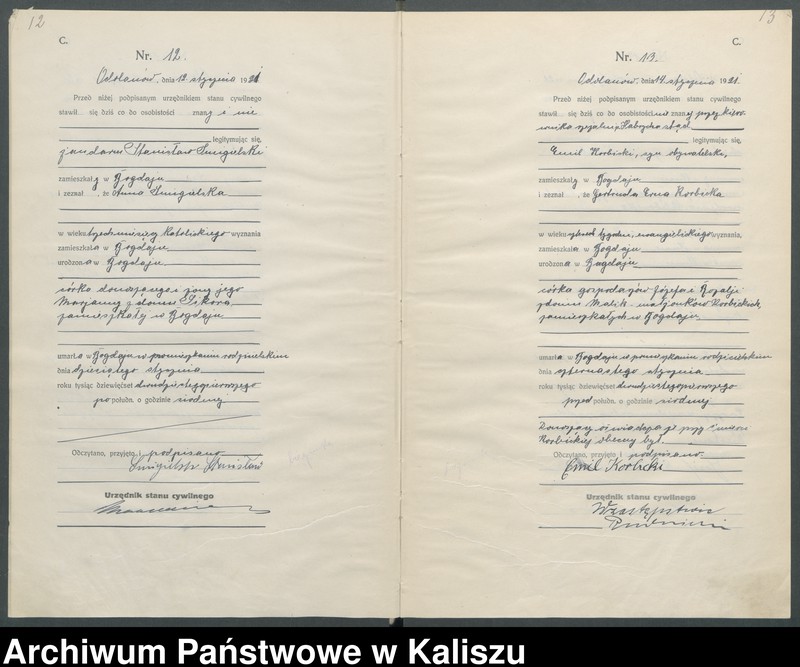 12
C.
Nr. 12.
Odolanów, dnia 12 stycznia 1921
Przed niżej podpisanym urzędnikiem stanu cywilnego
stawił się dziś co do osobistości znany i nie
legitymując się,
żandarm Stanisław Smigielski
zamieszkały w Bogdaju
i zeznał, że Anna Smigielska
w wieku trzech miesięcy katolickiego wyznania
zamieszkała w Bogdaju
urodzona w Bogdaju
córka donoszącego i żony jego
Marjanny z domu Sikora
zamieszkały w Bogdaju
umarła w Bogdaju w pomieszkaniu rodzicielskim
dnia dziesiątego stycznia
roku tysiąc dziewięćset dwudziestegopierwszego
po połudn. o godzinie siódmej
Odczytano, przyjęto i podpisano
Smigielski Stanisław
Urzędnik stanu cywilnego
13
C.
Nr. 13.
Odolanów, dnia 14 stycznia 1921.
Przed niżej podpisanym urzędnikiem stanu cywilnego
stawił się dziś co do osobistości znany przez kierownika
legitymując się,
Emil Korbicki, syn obywatelski,
zamieszkały w Bogdaju
i zeznał, że Gertruda Erna Korbicka
w wieku tygodni, ewangelickiego wyznania,
zamieszkała w Bogdaju
urodzona w Bogdaju
córka gospodarzów Józefa i Rozalji
z domu Malik małżonków Korbickich,
zamieszkałych w Bogdaju
umarła w Bogdaju w pomieszkaniu rodzicielskim
dnia czternastego stycznia
roku tysiąc dziewięćset dwudziestegopierwszego
przed połudn. o godzinie siódmej
Donoszący oświadcza że przy śmierci
Korbickiej obecny był.
Odczytano, przyjęto i podpisano.
Emil Korbicki
Urzędnik stanu cywilnego
W zastępstwie
Archiwum Państwowe w Kaliszu